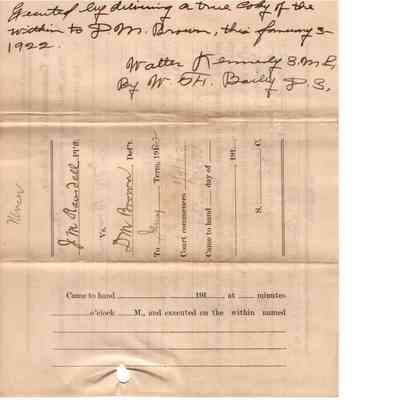 Executed by delivering a true copy of the
within to D M. Brown, this January 3-
1922.
Walter Kennedy S.M.C,
By W. H. Baily D.S,
J M Ransdell, Pl'ff,
Vs.
D M Brown Def't.
To Term, 191
Court commences
Came to hand day of
191
S. C.
Came to hand 191 at minutes
o'clock M., and executed on the within named